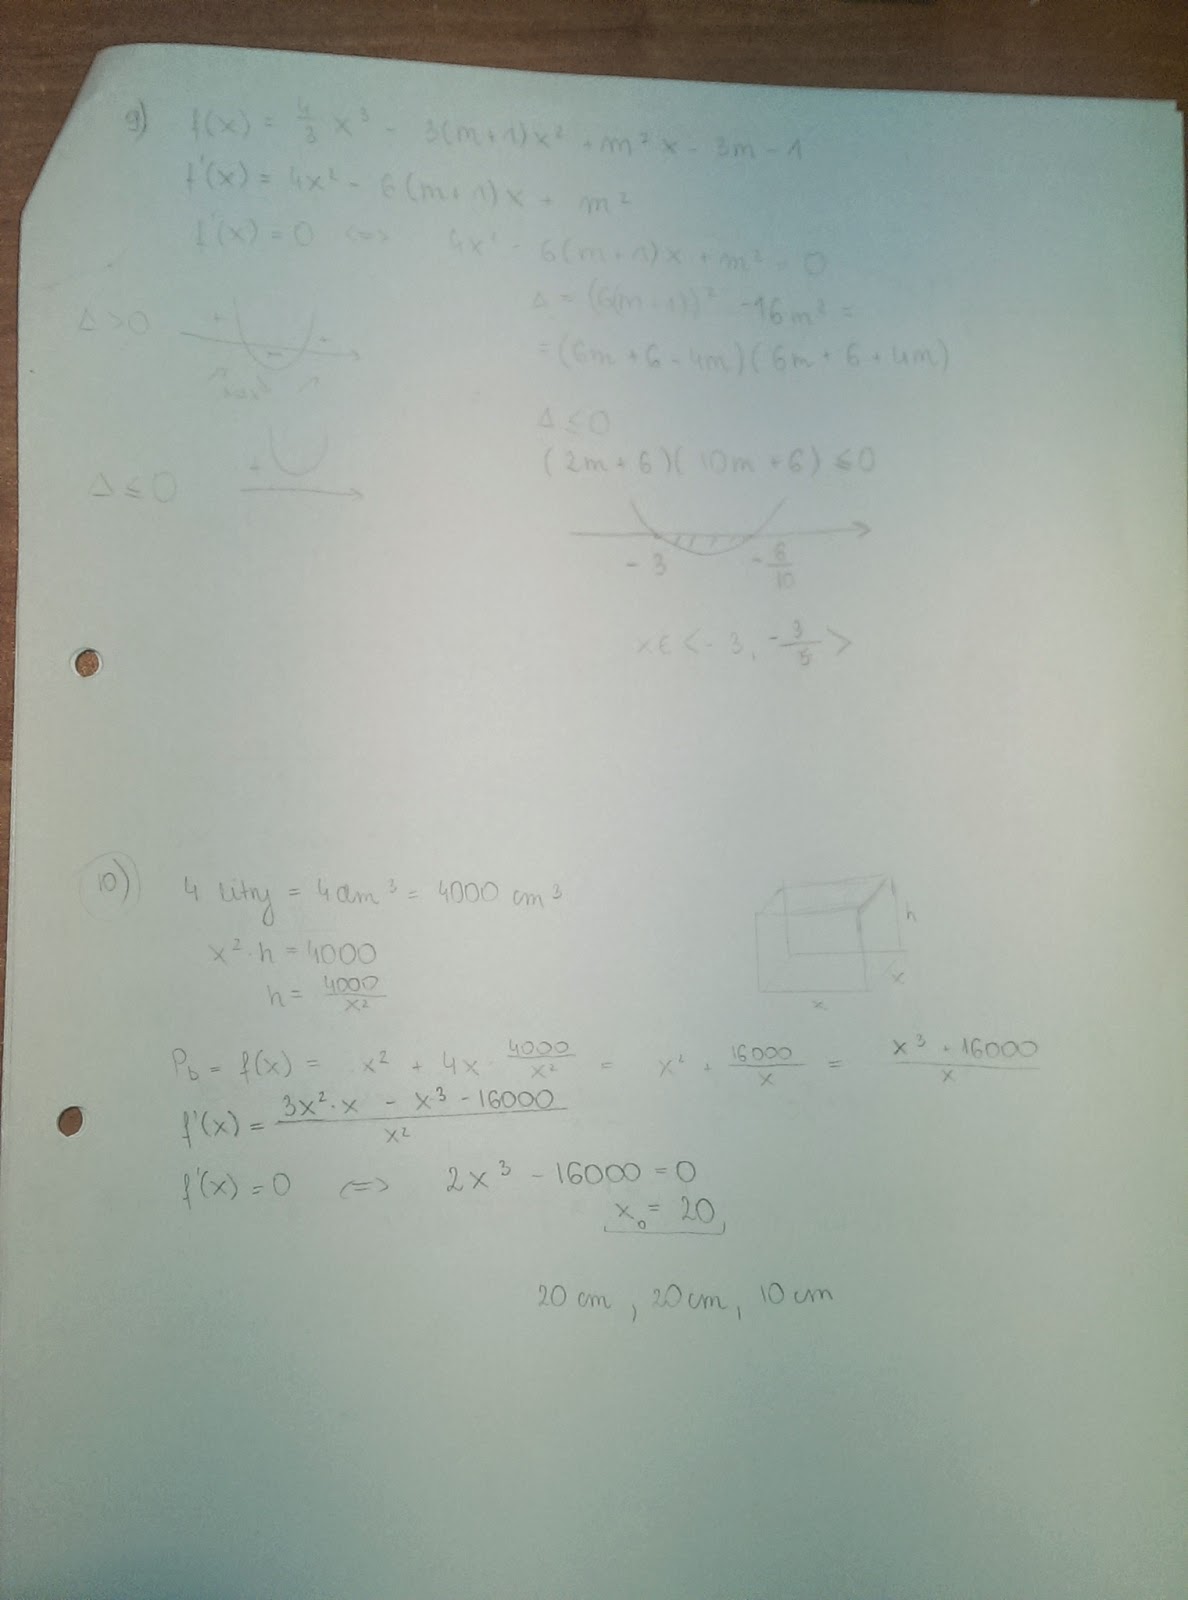 9) f(x) = 4/3 x³ - 3(m+1)x² + m²x - 3m - 1
f'(x) = 4x² - 6(m+1)x + m²
f'(x) = 0 <=> 4x² - 6(m+1)x + m² = 0
Δ = (6(m+1))² - 16m² =
Δ>0 + - +
= (6m + 6 - 4m)(6m + 6 + 4m)
Δ ≤ 0
(2m + 6)(10m + 6) ≤ 0
Δ ≤ 0 +
-3 -6/10
x ∈ <-3, -3/5>
10) 4 litry = 4dm³ = 4000 cm³
h
x² · h = 4000
x
h = 4000/x²
x
Pb = f(x) = x² + 4x · 4000/x² = x² + 16000/x = x³ + 16000/x
f'(x) = 3x² · x - x³ - 16000/x²
f'(x) = 0 <=> 2x³ - 16000 = 0
x₀ = 20
20 cm, 20 cm, 10 cm